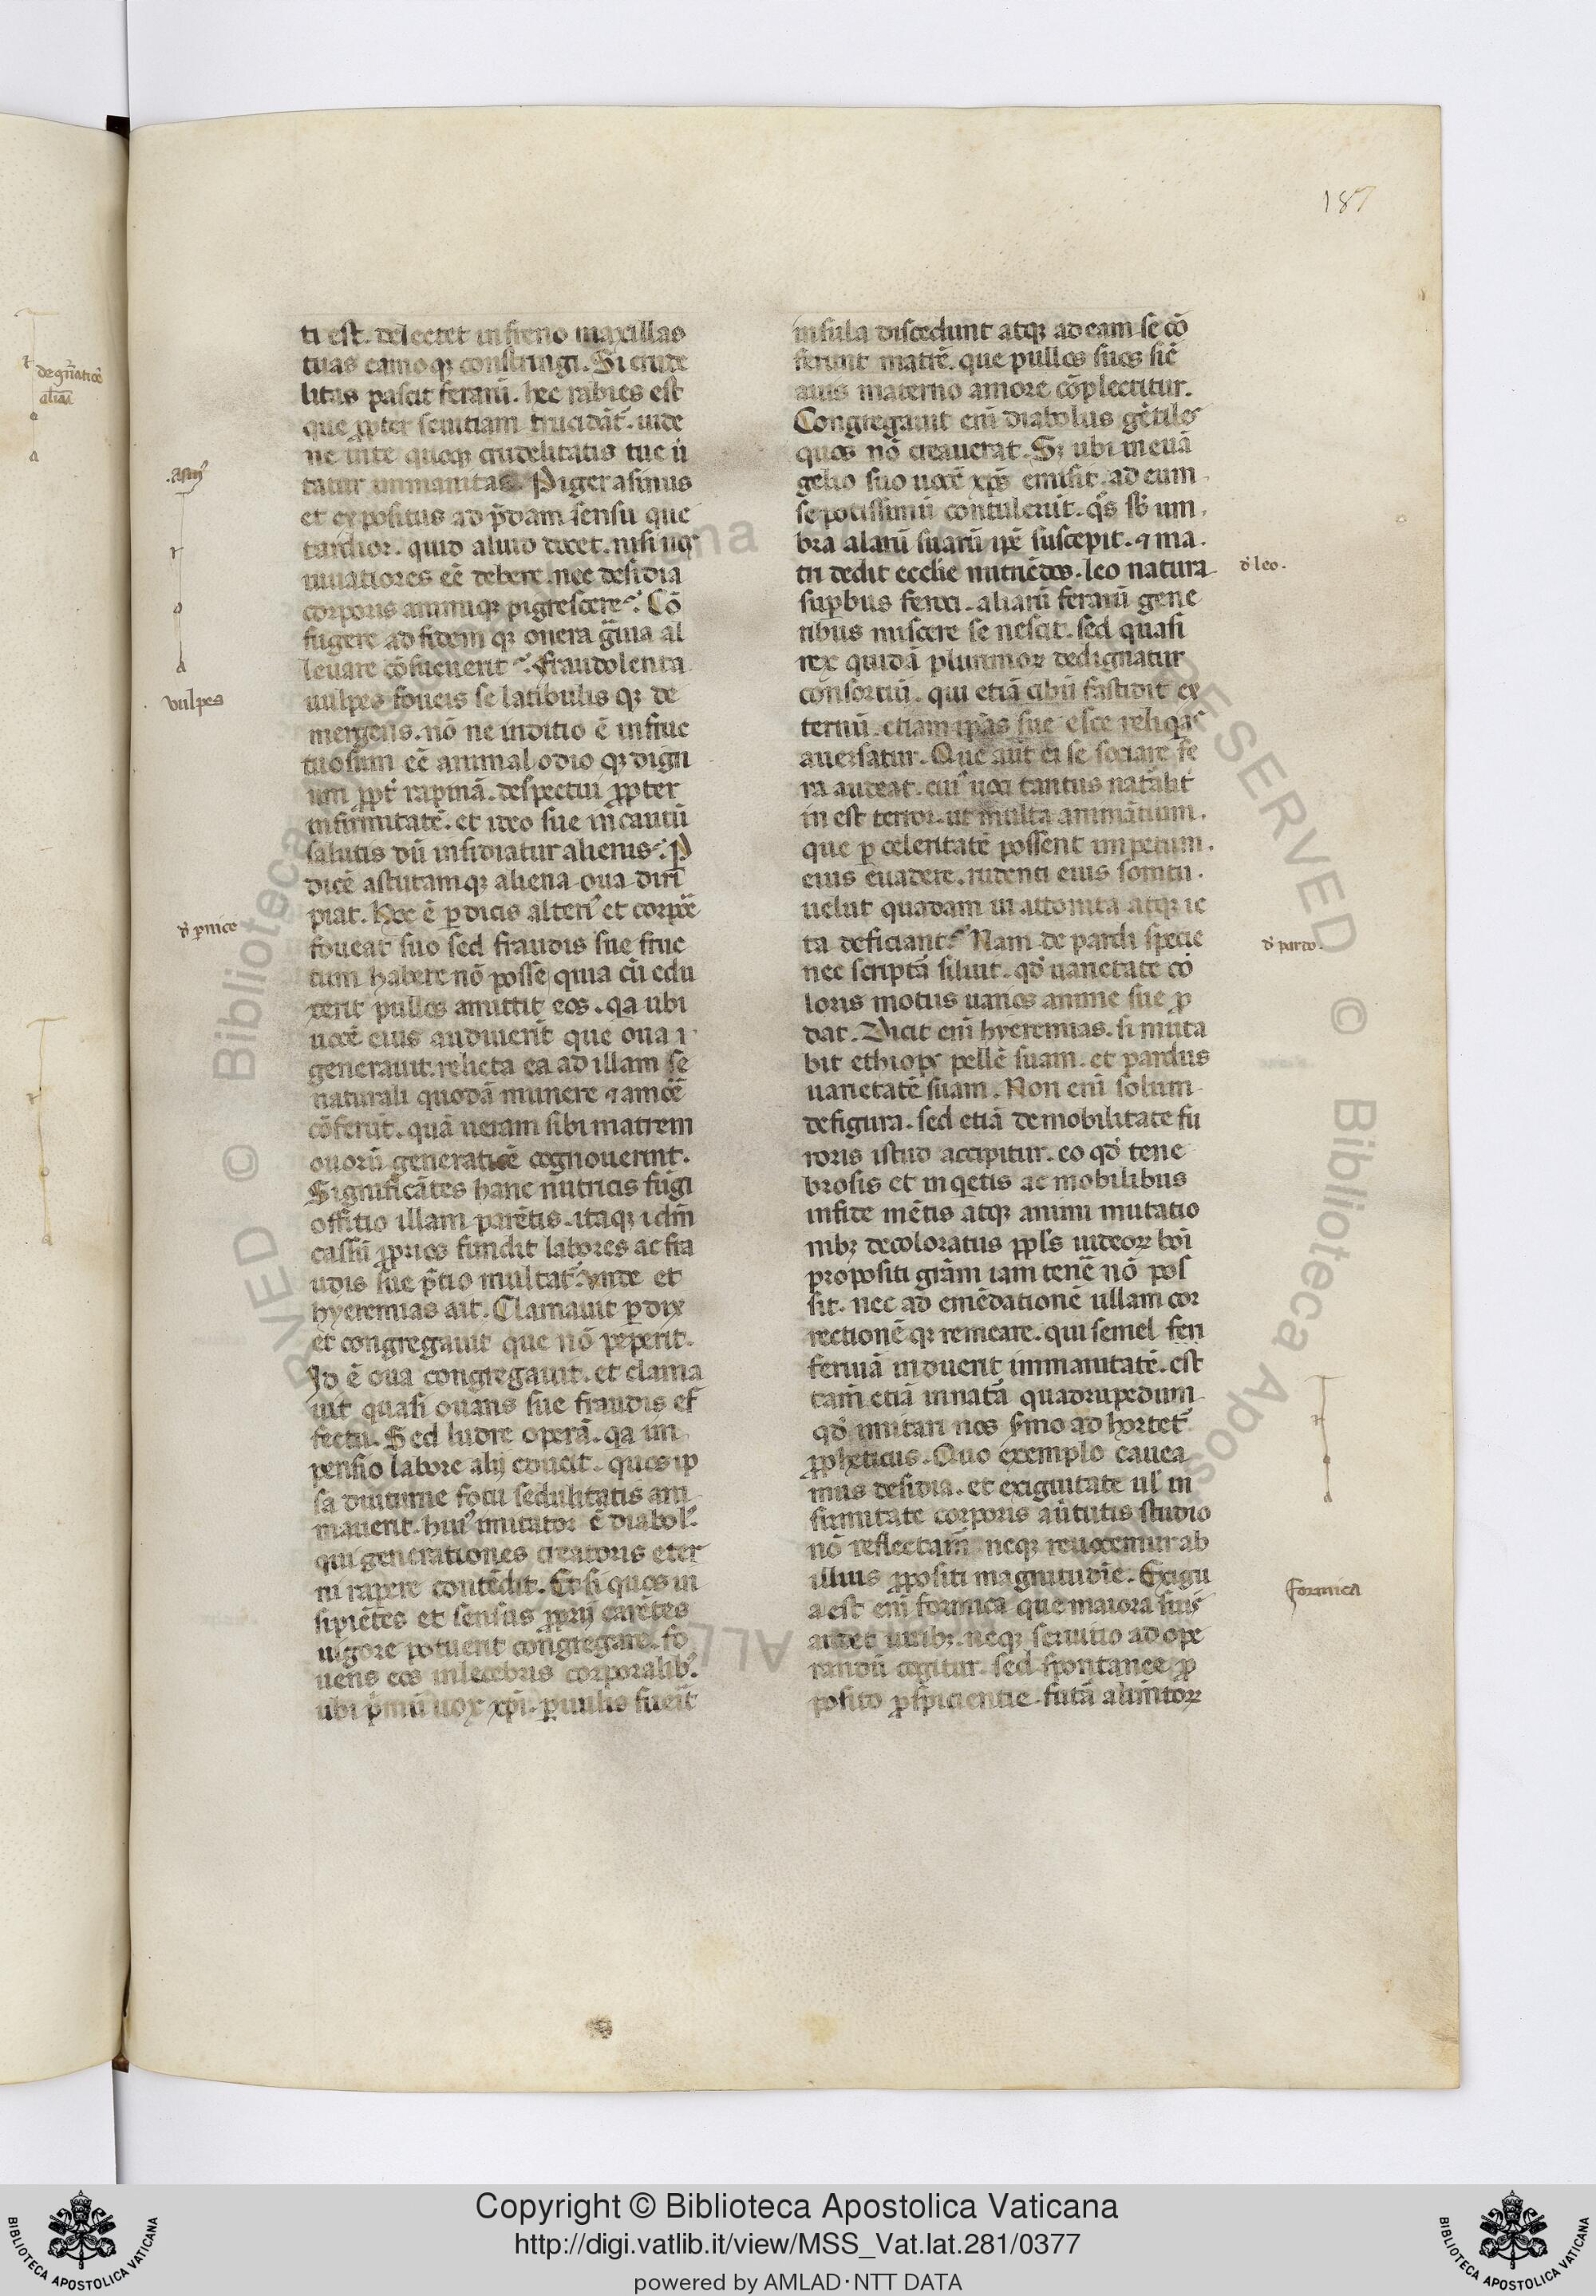 187
ti est. delectet in freno maxillas
tuas camoqꝫ constringi. Si crude
litas pascit ferarū. hec rabies est
que ꝓpter seuitiam trucidāt᷑. uide
ne inte quoqꝫ crudelitatis tue ū
tatur inmanitas Piger asinus
et expositus ad p̄dam sensu que
tardior. quid aliud docet. nisi
uiuatiores eē debere. nec desidia
corporis animiqꝫ pigrescere. Cō
fugere ad fidem qꝫ onera g̃uia al
leuare cōsueuerit. fraudolenta
uulpes foueis se latibulis qꝫ de
mergens. nō ne inditio ē infruc
tuosum eē animal odio qꝫ dign
um ꝓpt̕ rapinā. despectui ꝓpter
infirmitatē. et ideo sue in cautū
salutis dū insidiatur alienis. P
dicē astutamqꝫ aliena oua diri
piat. hoc ē ꝑdicis alteri᷒ et corpoē
foueat suo sed fraudis sue fruc
tum habere nō posse quia cū edu
xerit pullos amittit eos. qa ubi
uocē eius audiuerit que oua ı
generauit. relicta ea ad illam se
naturali quodā munere ⁊ amoē
cōferūt. quā ueram sibi matrem
ouorū generatioē cognouerint.
Significātes hanc nutricis fūgi
offitio illam parētis. itaqꝫ idm̄
cassū ꝓprios fundit labores ac fra
udis sue p̄tio multat᷑. unde et
hyeremias ait. Clamauit ꝑdix
et congregauit que nō peperit.
Id ē oua congregauit. et clama
uit quasi ouans sue fraudis ef
fectu. Sed ludre operā. qa im
penso labore alij educit. quos ip
sa diuturne fotu sedulitatis ani
mauerit. hui᷒ imitator ē diabol᷒.
qui generationes creatoris eter
ni rapere contēdit. Et si quos in
sipiētes et sensus ꝓprij carētes
uigore potuerit congregare. fo
uens eos inlecebris corporalibꝫ.
ubi p̄mū uox xp̄i. ꝑuulis fuerit
insula discedunt atqꝫ ad eam se cō
ferunt matrē. que pullos suos sic̄
auis materno amore cōplectitur.
Congregauit eni diabolus gētiles
quos nō creauerat. Sꝫ ubi in euā
gelio suo uocē xp̄s emisit. ad eum
se potissimū contulerūt. q̊s sb̄ um
bra alarū suarū ip̄e suscepit. ⁊ ma
tri dedit ecclie nutriēdos. leo natura
suꝑbus feroci. aliarū ferarū gene
ribus miscere se nescit. sed quasi
rex quidā plurimoꝝ dedignatur
consortiū. qui etiā cibū fastidit ex
ternū. etiam ip̄as sue esce reliqas
auersatur. Que aūt ei se sociare fe
ra audeat. cui᷒ uoci tantus natalit̕
in est terror. ut multa animātium.
que ꝑ celeritatē possent impetum.
eius euadere. rudenti eius sonitu.
uelut quadam ui attonita atqꝫ ic
ta deficiant. Nam de pardi specie
nec scriptā siluit. qd̓ uarietate co
loris motus uarios anime sue ꝓ
dat. Dicit eni hyeremias. si muta
bit ethiops pellē suam. et pardus
uarietatē suam. Non eni solum
de figura. sed etiā de mobilitate fu
roris istud accipitur. eo qd̓ tene
brosis et inqetis ac mobilibus
infide mētis atqꝫ animi mutatio
nibꝫ decoloratus ppl̄s iudeoꝝ boī
propositi grām iam tene nō pos
sit. nec ad emēdationē ullam cor
rectionē qꝫ remeare. qui semel feri
ferinā induerit immanitatē. est
tam̄ etiā innatā quadrupedum
qd̓ imitari nos s̄mo ad hortet᷑
ꝓpheticus. Quo exemplo cauea
mus desidia. et exiguitate ul̕ in
firmitate corporis a ūtutis studio
nō reflectam᷒ neqꝫ reuocemur ab
illius ꝓpositi magnitudīe. Exigu
a est eni formica que maiora suis
audet uiribꝫ. neqꝫ seruitio ad ope
randū cogitur. sed spontanee ꝓ
posito ꝓspicientie. futā alimtoꝝ
asin᷒
N
o
t
a
vulpes
d̓ ꝑnice
d̓ leo.
d̓ pardo.
formica
Copyright © Biblioteca Apostolica Vaticana
http://digi.vatlib.it/view/MSS_Vat.lat.281/0377
powered by AMLAD·NTT DATA
BIBLIOTECA APOSTOLICA VATICANA
BIBLIOTECA APOSTOLICA VATICANA